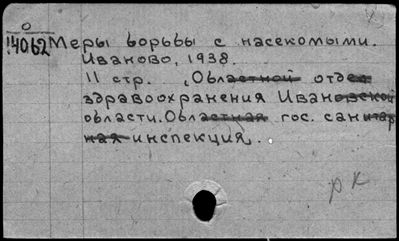 О
!4062 Меры борьбы с насекомыми.
Иваново, 1938.
11 стр. , Областной отдел
здравоохранения Ивановской
области. Областная гос. санитар
ная инспекция.
рк